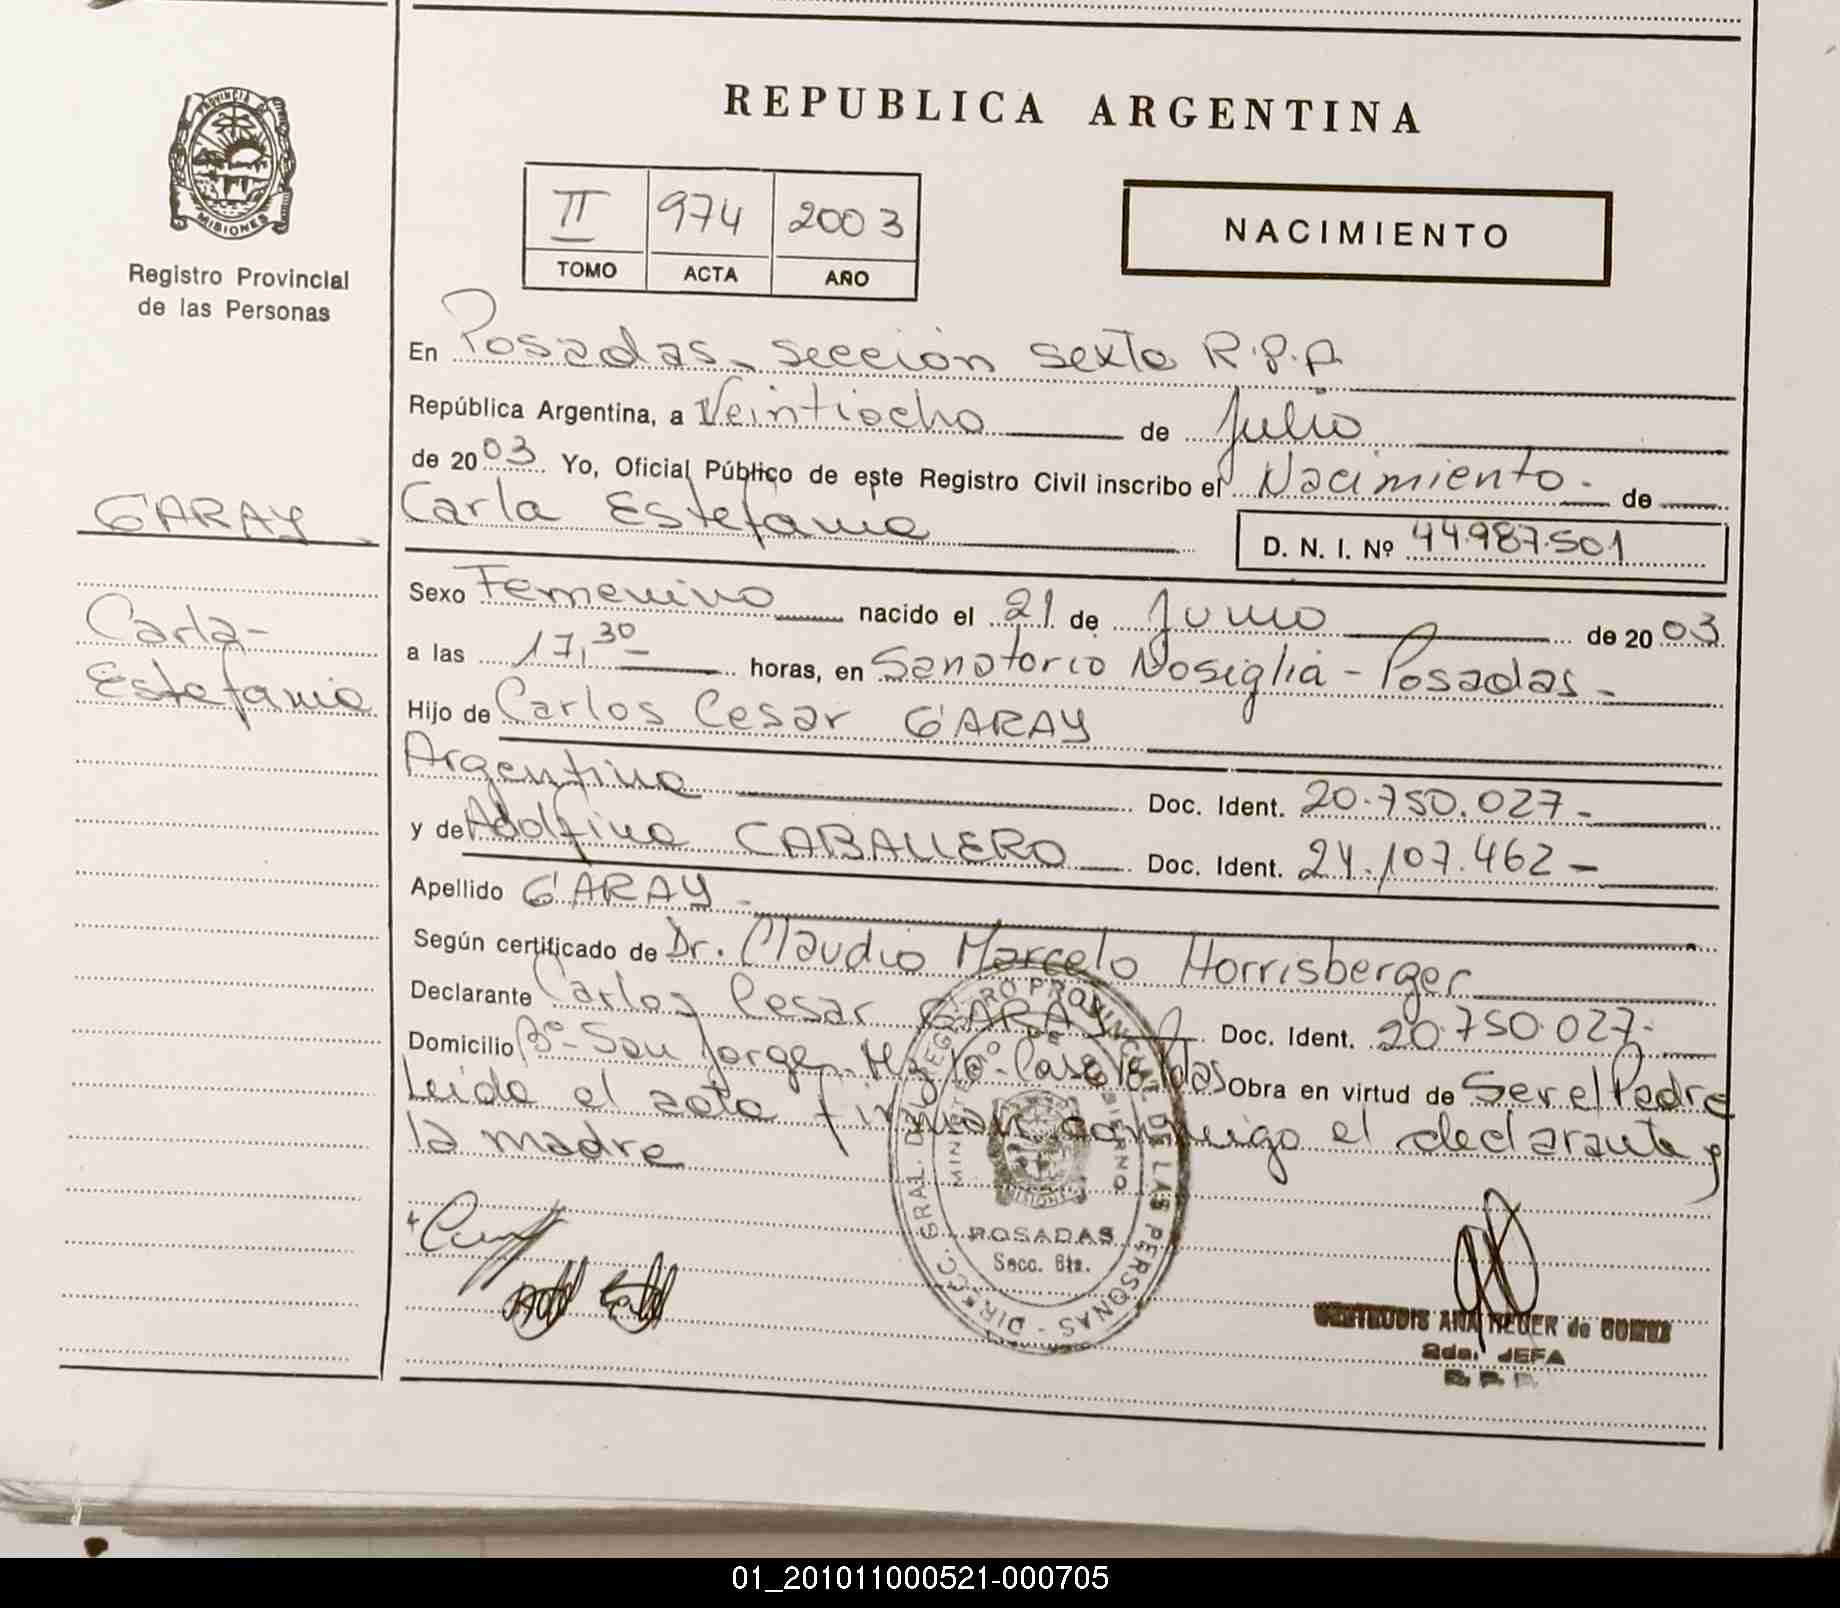 REPUBLICA ARGENTINA
PROVINCIA
MISIONES
Registro Provincial
de las Personas
II 974 2003
TOMO ACTA AÑO
NACIMIENTO
En Posadas, sección sexta R.P.P.
República Argentina, a Veintiocho de Julio
de 2003 Yo, Oficial Público de este Registro Civil inscribo el Nacimiento de
GARAY
Carla Estefania
D. N. I. Nº 44.987.501
Sexo Femenino nacido el 21 de Junio de 2003
Carla
Estefania
a las 17,30 horas, en Sanatorio Nosiglia - Posadas -
Hijo de Carlos Cesar GARAY
Argentina Doc. Ident. 20.750.027 -
y de Adolfina CABALLERO Doc. Ident. 24.107.462 -
Apellido GARAY -
Según certificado de Dr. Claudio Marcelo Horrisberger
Declarante Carlos Cesar GARAY Doc. Ident. 20.750.027-
Domicilio Bº San Jorge Mz Casa Pdas Obra en virtud de Ser el Padre
Leida el acta firman conmigo el declarante y
la madre
DIRECC. GRAL. DEL REGISTRO PROVINCIAL DE LAS PERSONAS
MINISTERIO DE GOBIERNO
MISIONES
POSADAS
Secc. 6ta.
ANA REGER de
2da. JEFA
R. P. P.
01_201011000521-000705